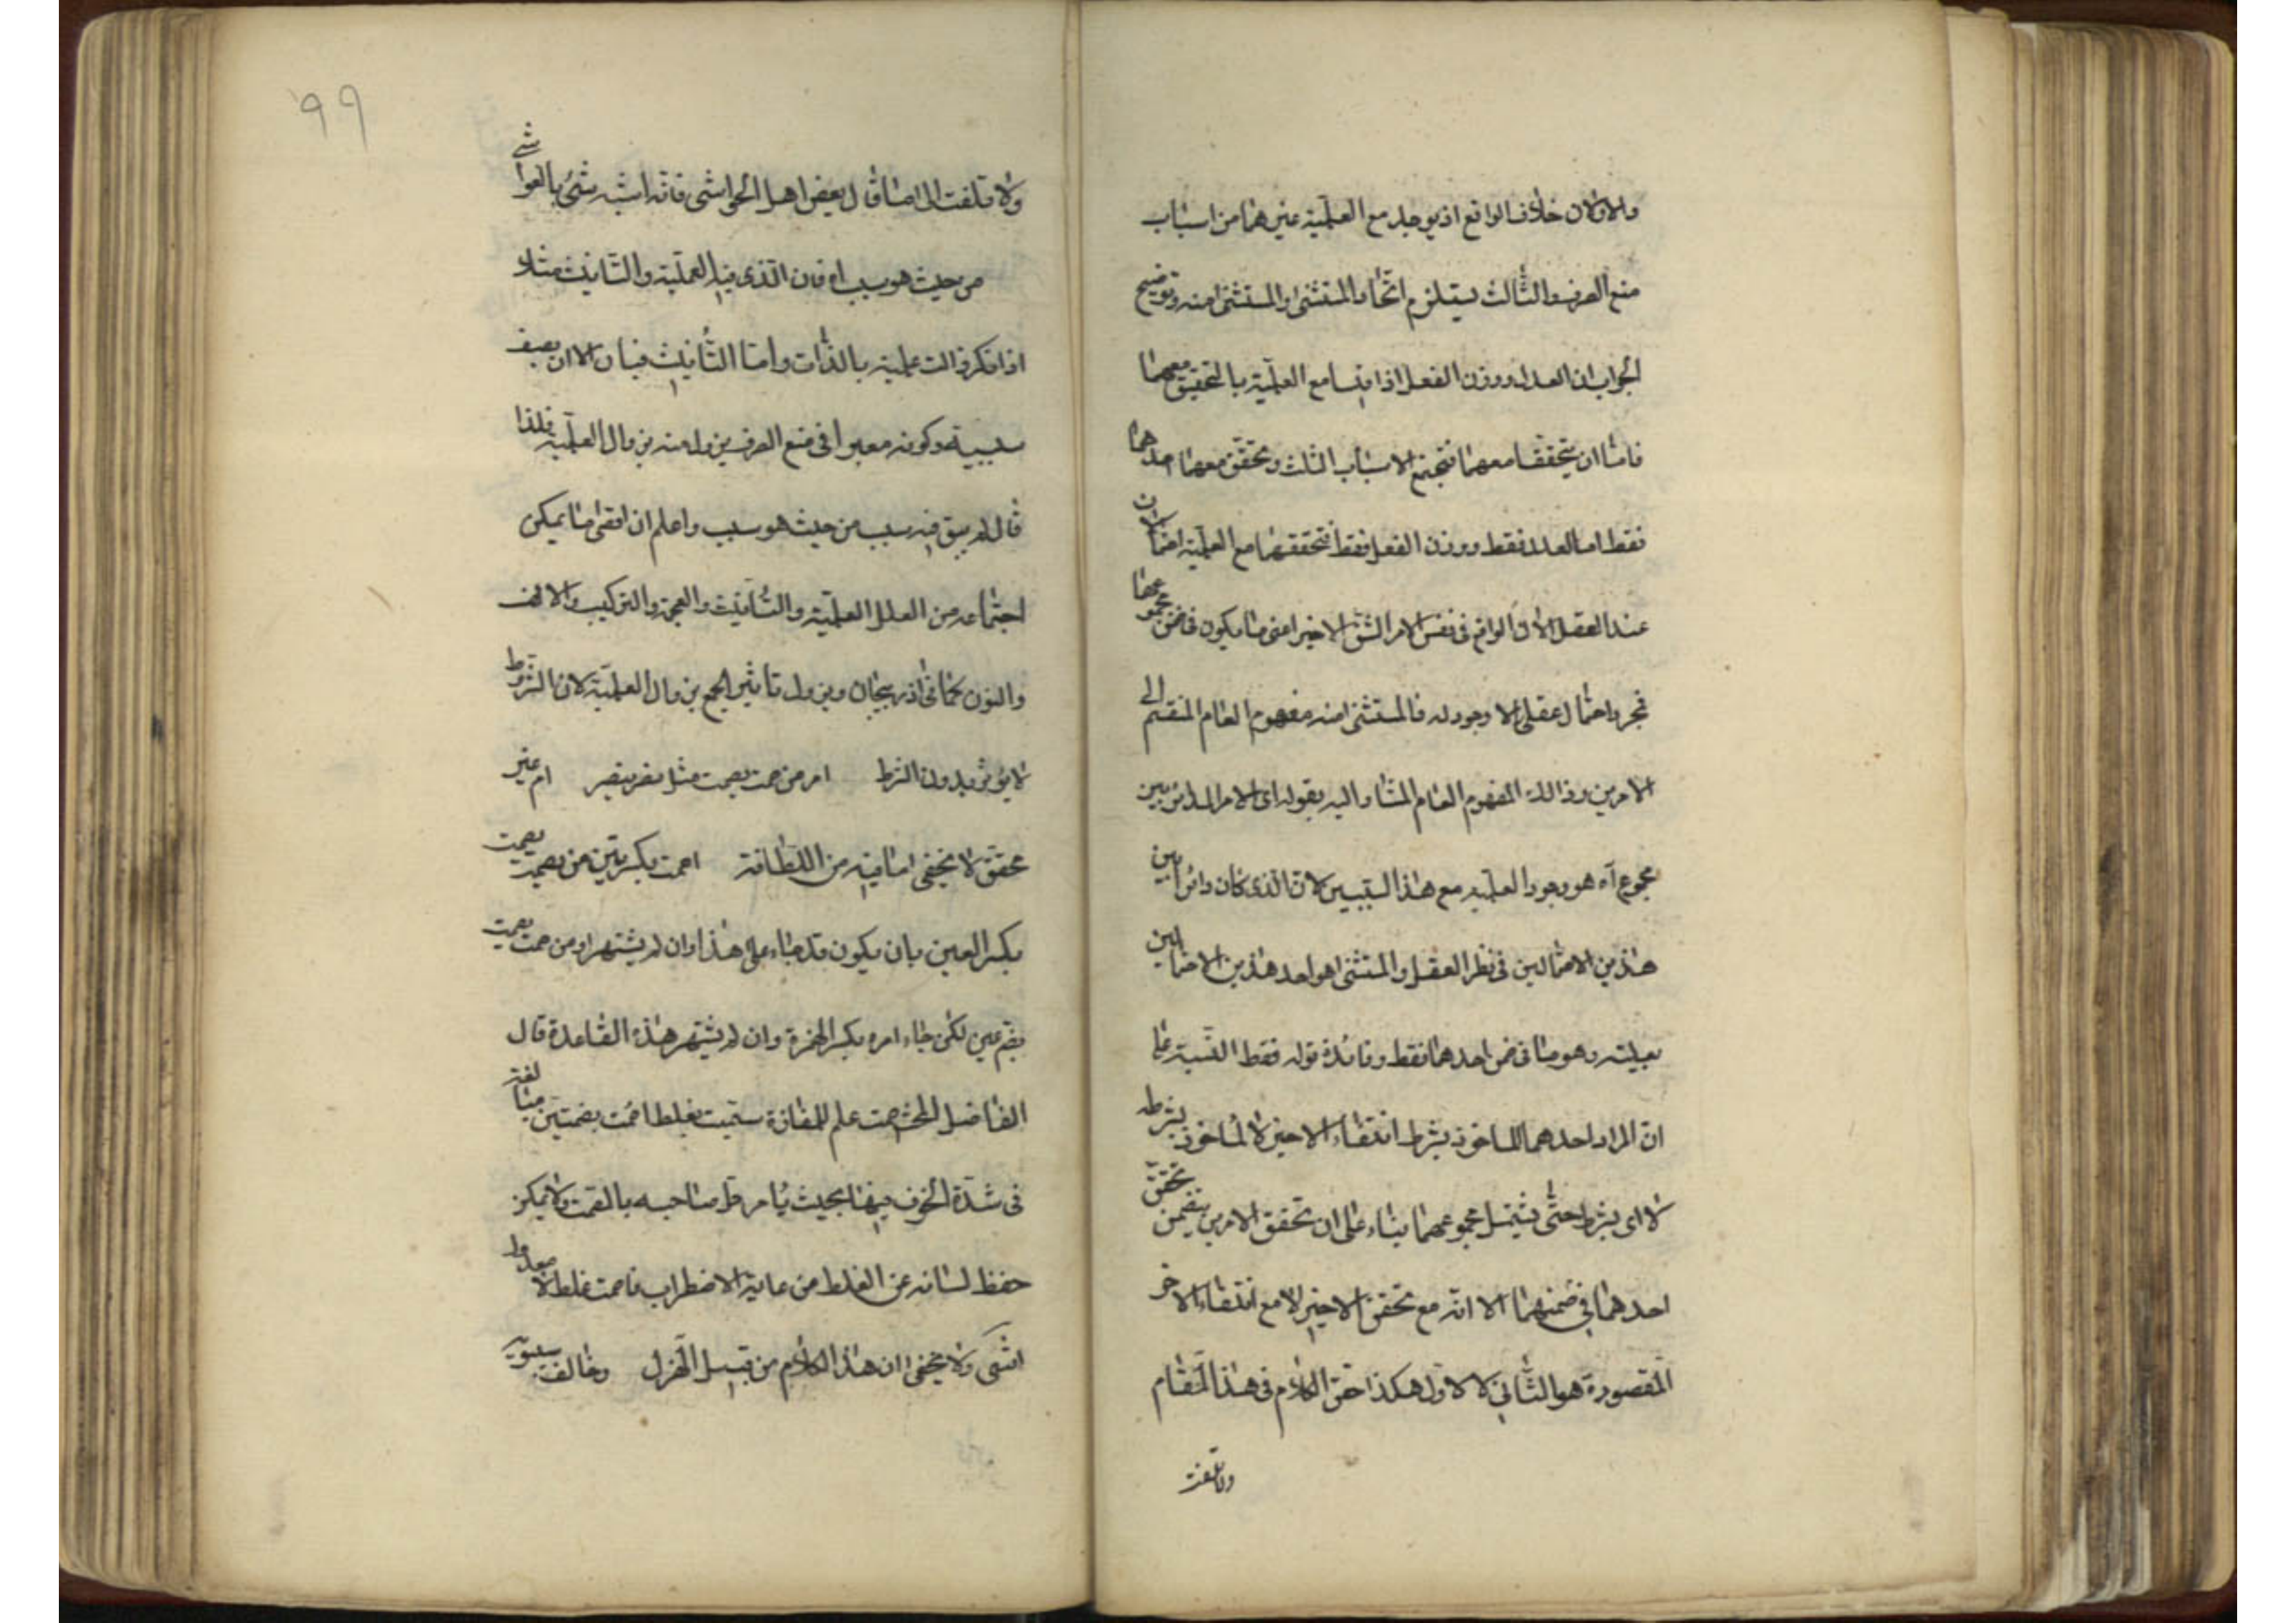 والاولان خلاف الواقع اذ يوجد مع العلمية غيرهما من اسباب
منع الصرف والثالث يستلزم اتحاد المستثنى والمستثنى منه وتوضيح
الجواب ان العدل ووزن الفعل اذا قيسا مع العلمية بالتحقيق معهما
فاما ان يتحققا معهما فتجتمع الاسباب الثلث وتحقق معهما احدهما
فقط اما العدل فقط ووزن الفعل فقط فتحققهما مع العلمية احتمالان
عند العقل الا ان الواقع فى نفس الامر الشق الاخير اعنى ما يكون فى ضمن مجموعهما
فمجرد احتمال عقلى لا وجود له فالمستثنى منه مفهوم العام المنقسم الى
الامرين وذالك المفهوم العام المشار اليه بقوله اى الامر الدائر بين
مجموع آه هو وجود العلمية مع هذا السببين لان الذى كان دائرا بين
هذين الاحتمالين فى نظر العقل والمستثنى هو احد هذين الاحتمالين
بعينه وهو ما فى ضمن احدهما فقط وفائدة قوله فقط التنبيه على
ان المراد احدهما الماخوذ بشرط انتفاء الاخير لا الماخوذ بشرط
لا اى بشرط حتى يشتمل مجموعهما بناء على ان تحقق الامرين يتضمن تحقق
احدهما فى ضمنهما الا انه مع تحقق الاخير لا مع انتفاء الاخر
المقصورة هو الثانى لا الاول هكذا حقق الكلام فى هذا المقام
ولا تلتفت
٩٩
ولا تلتفت الى ما قال بعض اهل الحواشى فانه اشبه شئ بالغواشى
من حيث هو سبب اه فان الذى فيه العلمية والتانيث مثلا
اذا نكر زالت علميته بالذات واما التانيث فباق الا ان بصفة
سببيته وكونه معبرا فى منع الصرف يزول منه بزوال العلمية فلذا
قال لم يبق فيه سبب من حيث هو سبب واعلم ان اقصى ما يمكن
اجتماعه من العلل العلمية والتانيث والعجمة والتركيب والالف
والنون كما فى اذربيجان ويزول تاثير الجميع بزوال العلمية لان المشروط
لا يؤثر بدون الشرط امر من صمت يصمت مثل نصر ينصر ام غير
محقق لا يخفى ما فيه من اللطافة اصمت بكسرتين من يصمت يصمت
بكسر العين بان يكون قد جاء على هذا وان لم يشتهر او من صمت يصمت
بضم عين لكن جاء امره بكسر الهمزة وان لم يشتهر هذه القاعدة قال
الفاضل المحشى اصمت علم للمفازة سميت بغلط اصمت بضمتين مبالغة
فى شدة الخوف فيها بحيث يامر كل صاحبه بالصمت ولا يمكن
حفظ لسانه عن الغلط من غاية الاضطراب فاصمت غلط لا معدول
انتهى ولا يخفى ان هذا الكلام من قبيل الهزل وخالف سيبويه